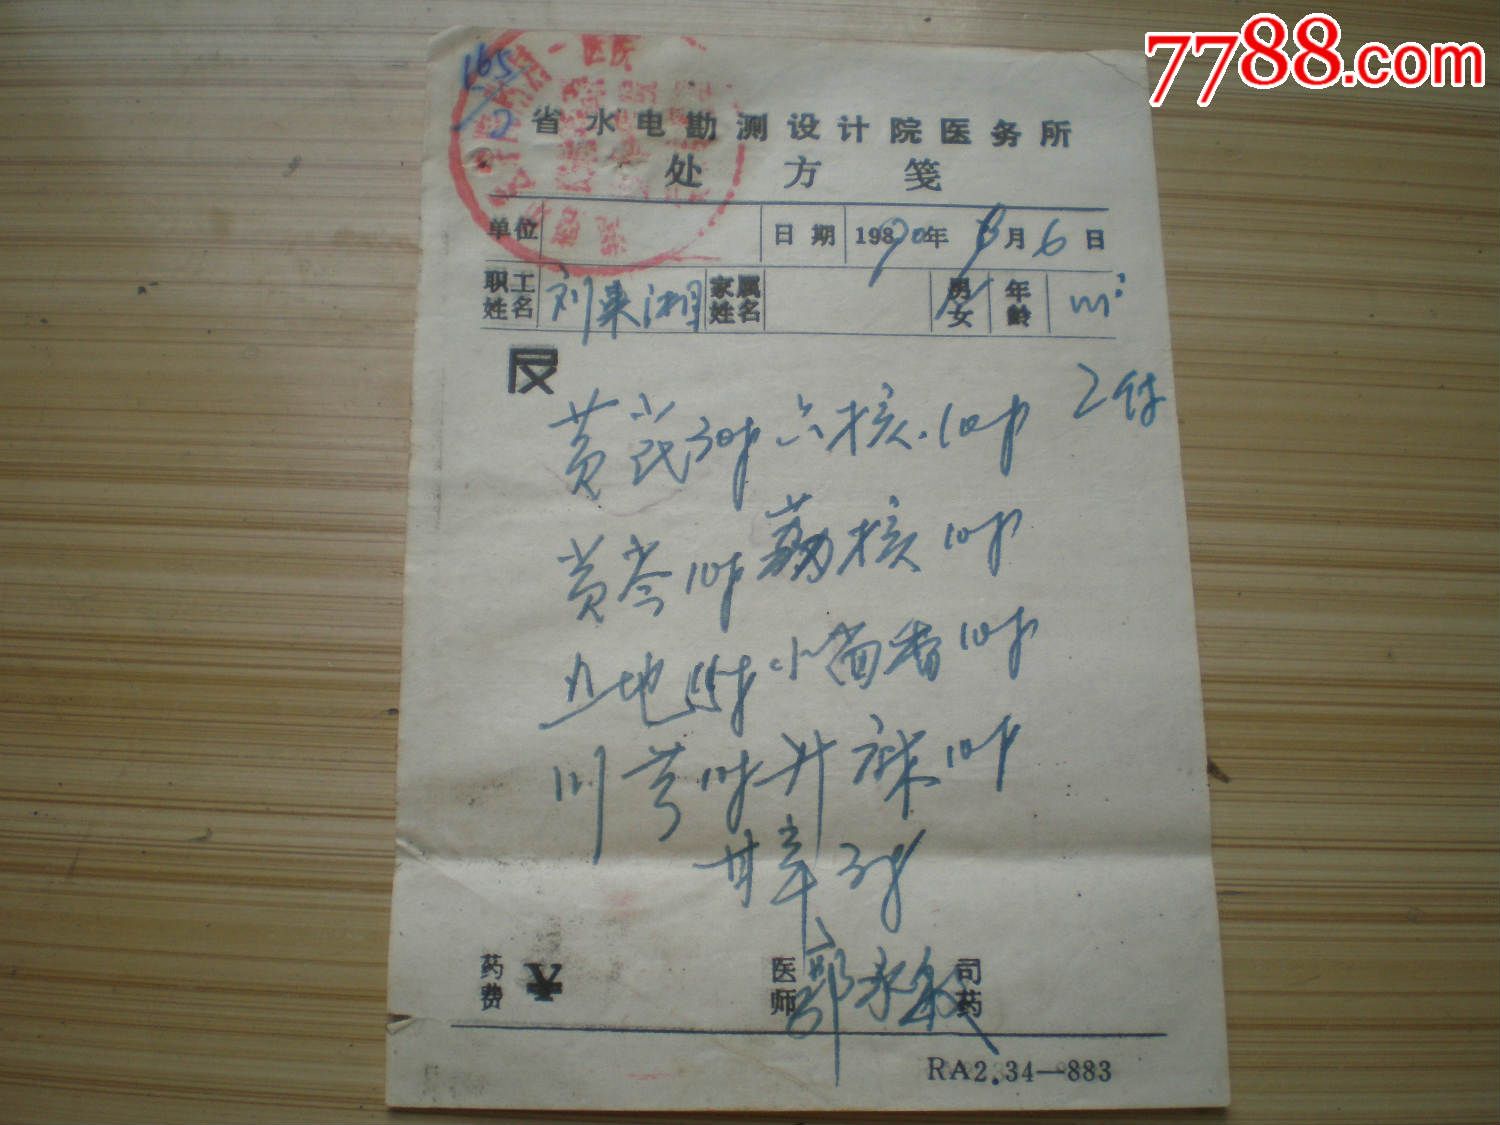 7788.com
165
省水电勘测设计院医务所
处方笺
单位 日期 1990年 8月6日
职工姓名 刘来湘 家属姓名 男女 年龄
2付
黄芪30g 六核10g
黄芩10g 荔核10g
生地15g 小茴香10g
川芎10g 升麻10g
甘草3g
药费 ¥ 医师 鄂永 司药
RA2.34—883